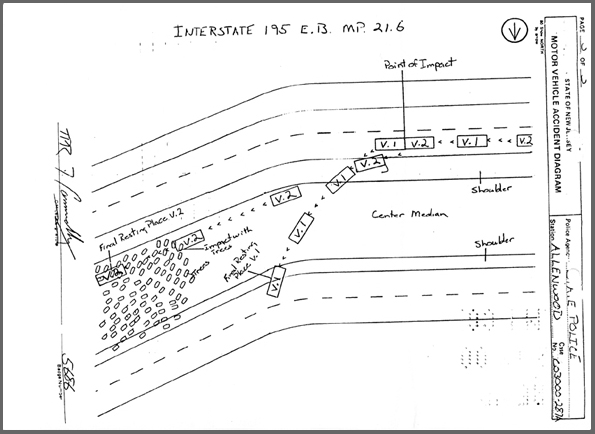 INTERSTATE 195 E.B. MP. 21.6
PAGE 2 OF 2
STATE OF NEW JERSEY
MOTOR VEHICLE ACCIDENT DIAGRAM
Police Agency
POLICE
Station ALLENWOOD
Case No.
Point of Impact
V.1 V.2 V.1 V.2
V.2
V.1
Shoulder
V.2
Center Median
V.1
Shoulder
Final Resting Place V.2
V.2
impact with trees
V.2
Trees
Final Resting Place V.1
V.1
TPR
5686
Badge Number